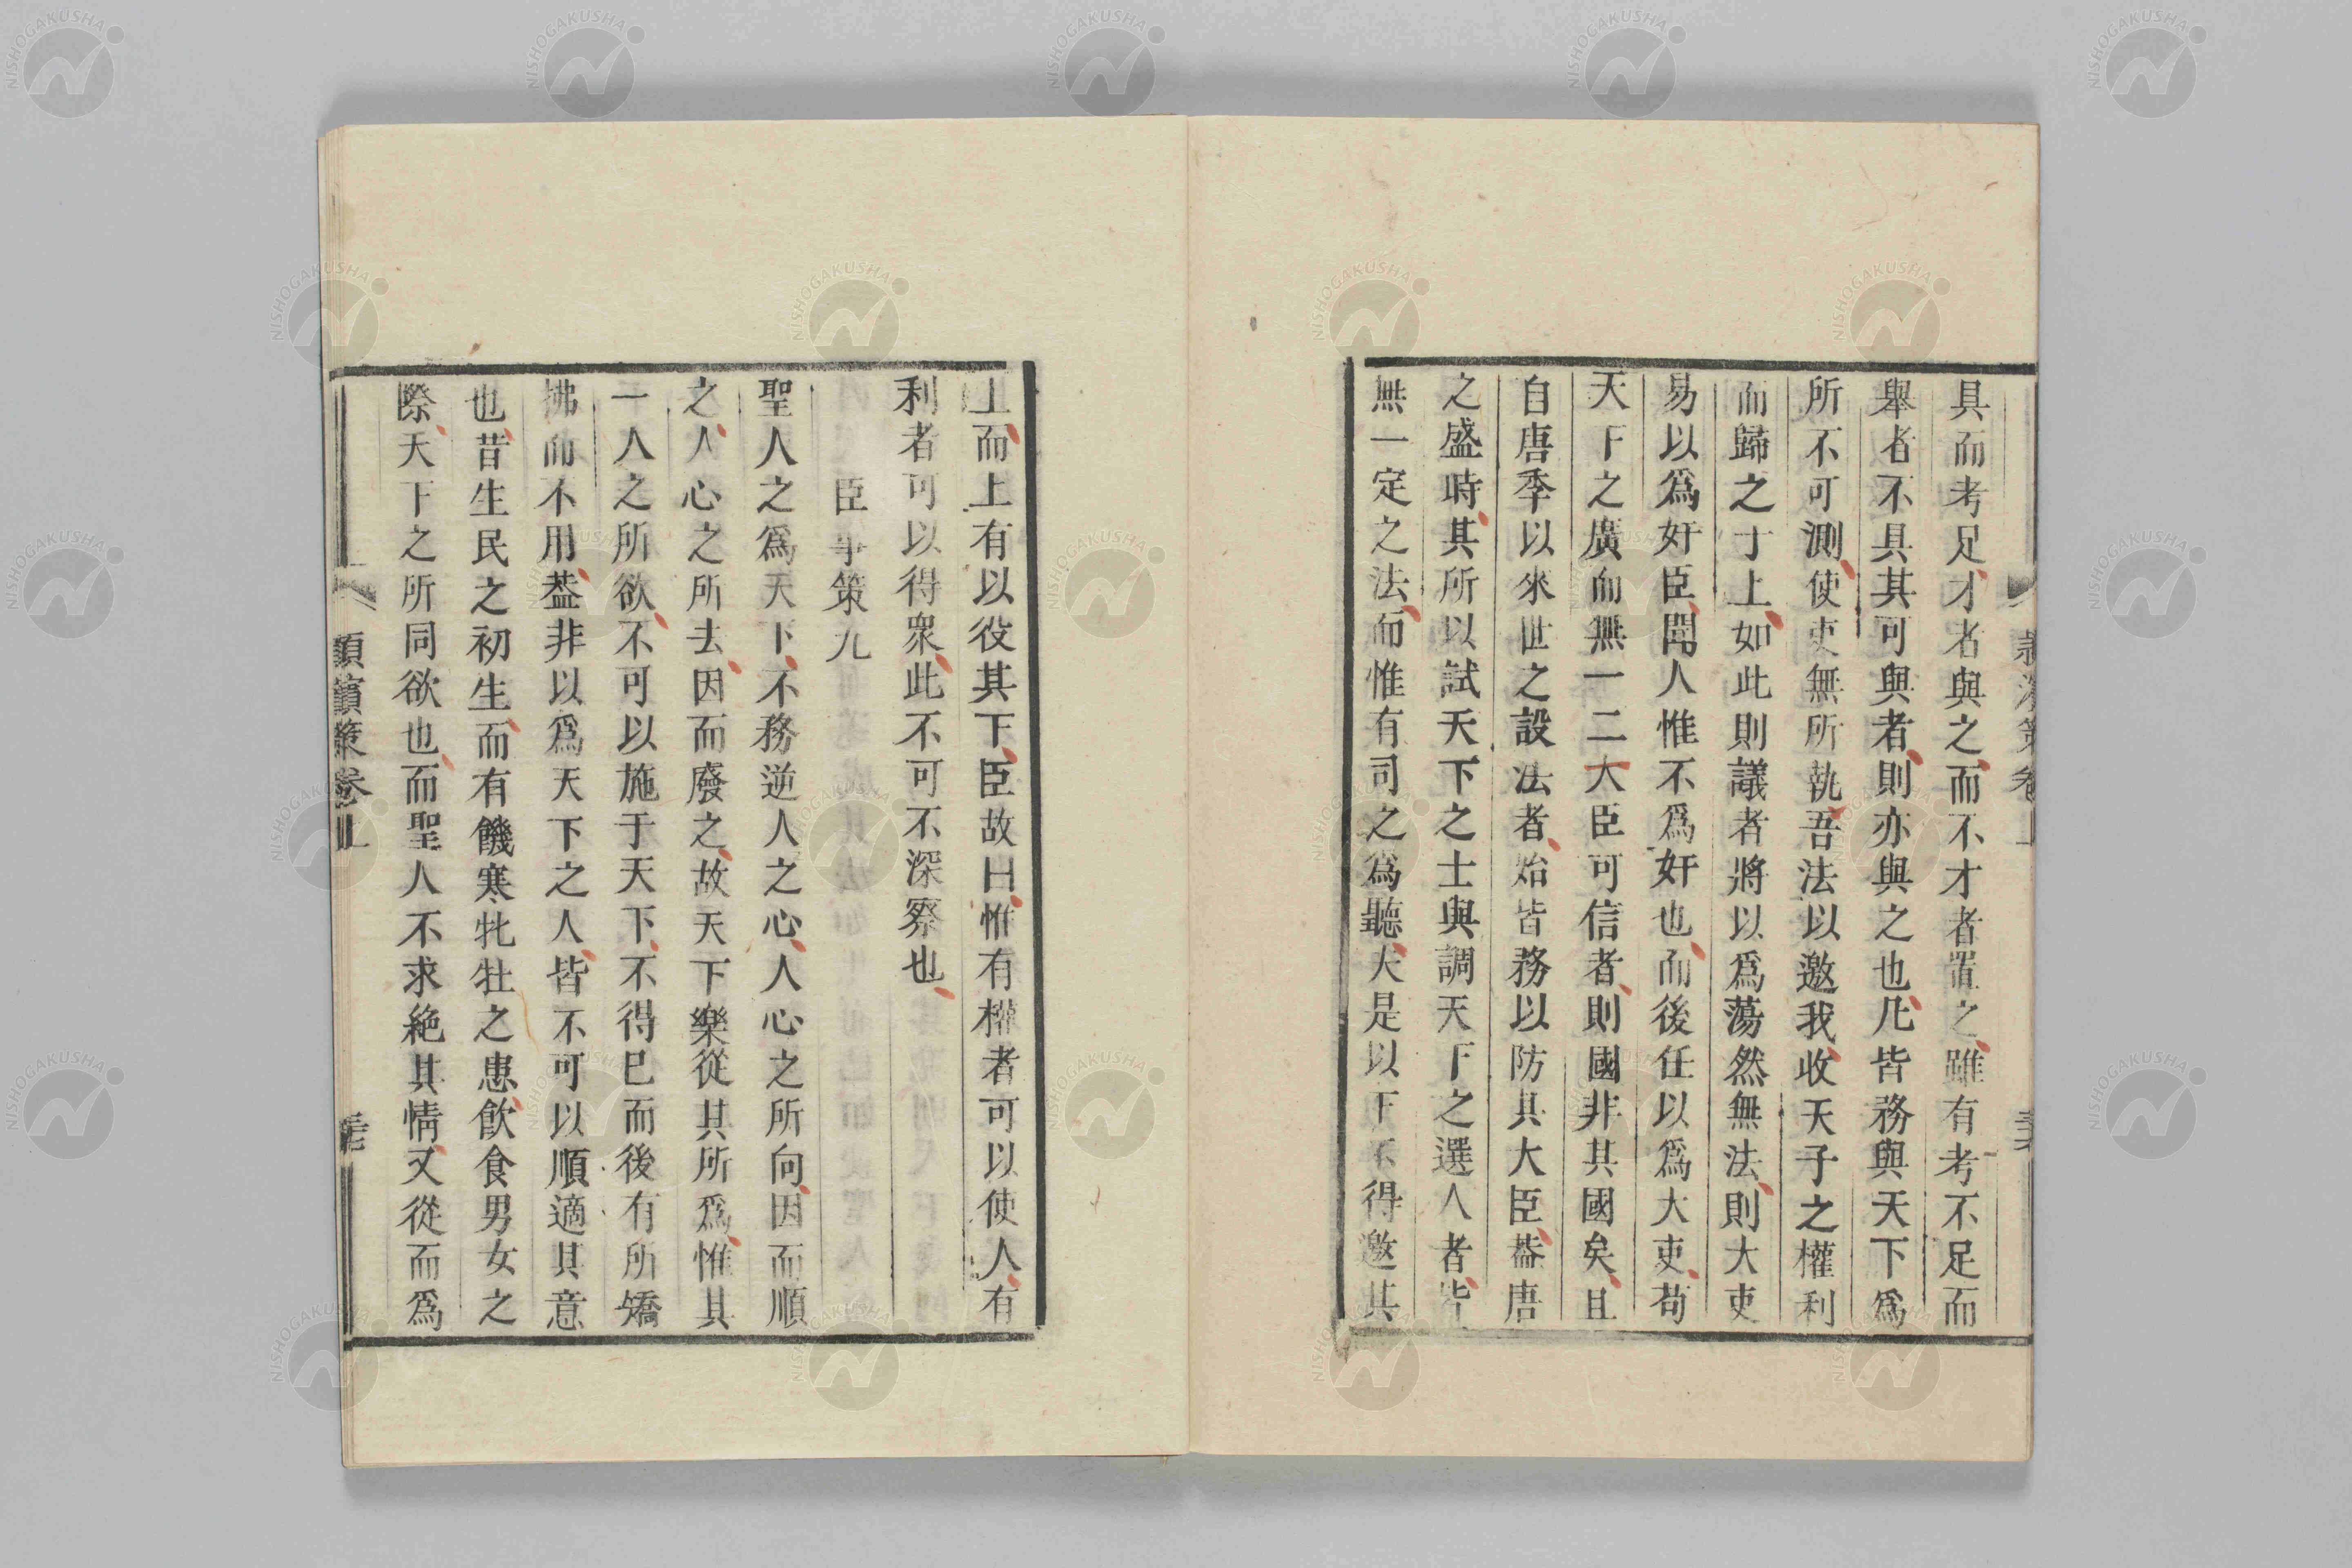 具而考足才者與之而不才者置之雖有考不足而
舉者不具其可與者則亦與之也凡皆務與天下爲
所不可測使吏無所執吾法以邀我收天子之權利
而歸之于上如此則議者將以爲蕩然無法則大吏
易以爲奸臣聞人惟不爲奸也而後任以爲大吏苟
天下之廣而無一二大臣可信者則國非其國矣且
自唐季以來世之設法者始皆務以防其大臣葢唐
之盛時其所以試天下之士與調天下之選人者皆
無一定之法而惟有司之爲聽夫是以下不得邀其
上而上有以役其下臣故曰惟有權者可以使人有
利者可以得衆此不可不深察也
臣事策九
聖人之爲天下不務逆人之心人心之所向因而順
之人心之所去因而廢之故天下樂從其所爲惟其
一人之所欲不可以施于天下不得已而後有所矯
拂而不用葢非以爲天下之人皆不可以順適其意
也昔生民之初生而有饑寒牝牡之患飲食男女之
際天下之所同欲也而聖人不求絶其情又從而爲
頴濵策卷上
NISHOGAKUSHA